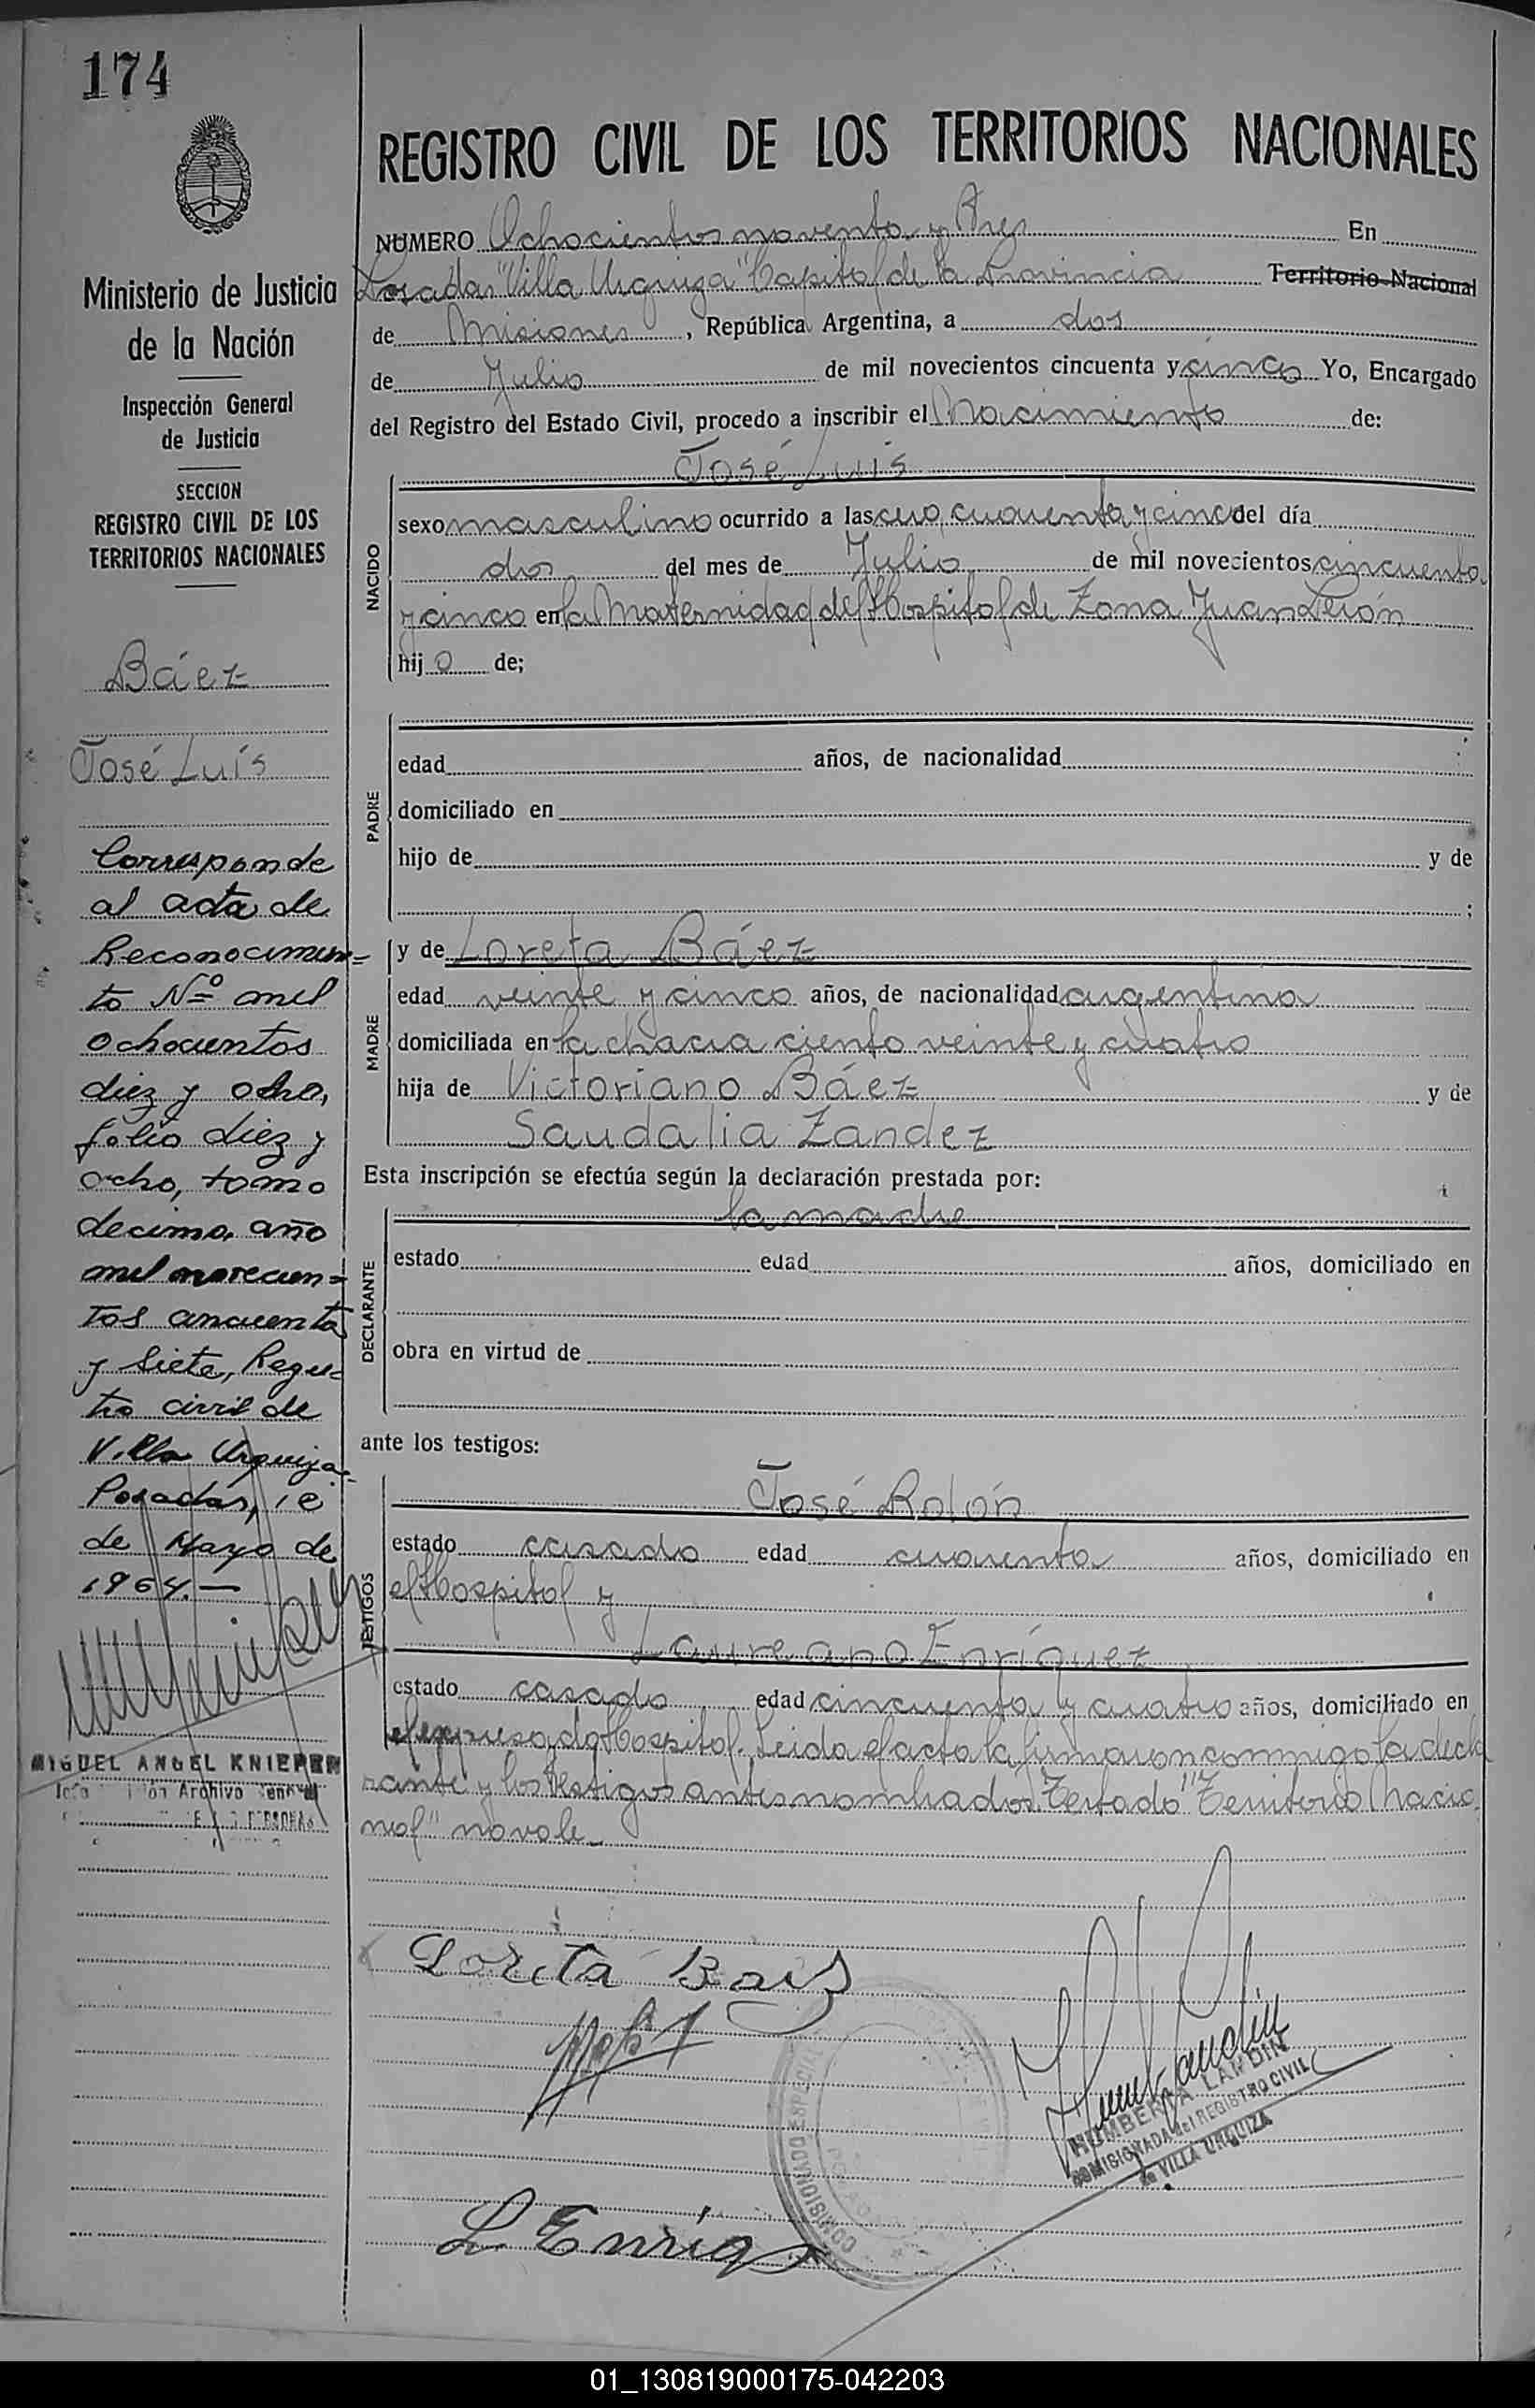 174
REGISTRO CIVIL DE LOS TERRITORIOS NACIONALES
Ministerio de Justicia
de la Nación
Inspección General
de Justicia
SECCION
REGISTRO CIVIL DE LOS
TERRITORIOS NACIONALES
Báez
José Luís
Corresponde
al acta de
Reconocimien=
to Nº mil
ochocientos
diez y ocho,
folio diez y
ocho, tomo
decimo, año
mil novecien=
tos cincuenta
y siete, Regis=
tro civil de
Villa Urquiza.-
Posadas,
de Mayo de
1964.-
MIGUEL ANGEL KNIEPER
Archivo General
NUMERO Ochocientos noventa y tres En
Posadas "Villa Urquiza" Capital de la Provincia Territorio Nacional
de Misiones, República Argentina, a dos
de Julio de mil novecientos cincuenta y cinco Yo, Encargado
del Registro del Estado Civil, procedo a inscribir el Nacimiento de:
NACIDO
José Luís
sexo masculino ocurrido a las cero, cuarenta y cinco del día
dos del mes de Julio de mil novecientos cincuenta
y cinco en la Maternidad del Hospital de Zona Juan Perón
hijo de;
PADRE
edad años, de nacionalidad
domiciliado en
hijo de y de
;
MADRE
y de Loreta Báez
edad veinte y cinco años, de nacionalidad argentina
domiciliada en la chacra ciento veinte y cuatro
hija de Victoriano Báez y de
Saudalia Zandez
Esta inscripción se efectúa según la declaración prestada por:
DECLARANTE
la madre
estado edad años, domiciliado en
obra en virtud de
ante los testigos:
TESTIGOS
José Rolón
estado casado edad cuarenta años, domiciliado en
el Hospital y
Laureano Enríquez
estado casado edad cincuenta y cuatro años, domiciliado en
el expresado Hospital. Leida el acta la firmaron conmigo la decla
rante y los testigos antes nombrados. Testado "Territorio Nacio
nal" no vale.-
Loreta Baez
L Enriq
HUMBERTA LANDIN
COMISIONADA del REGISTRO CIVIL
de VILLA URQUIZA
COMISIONADO ESPECIAL
01_130819000175-042203